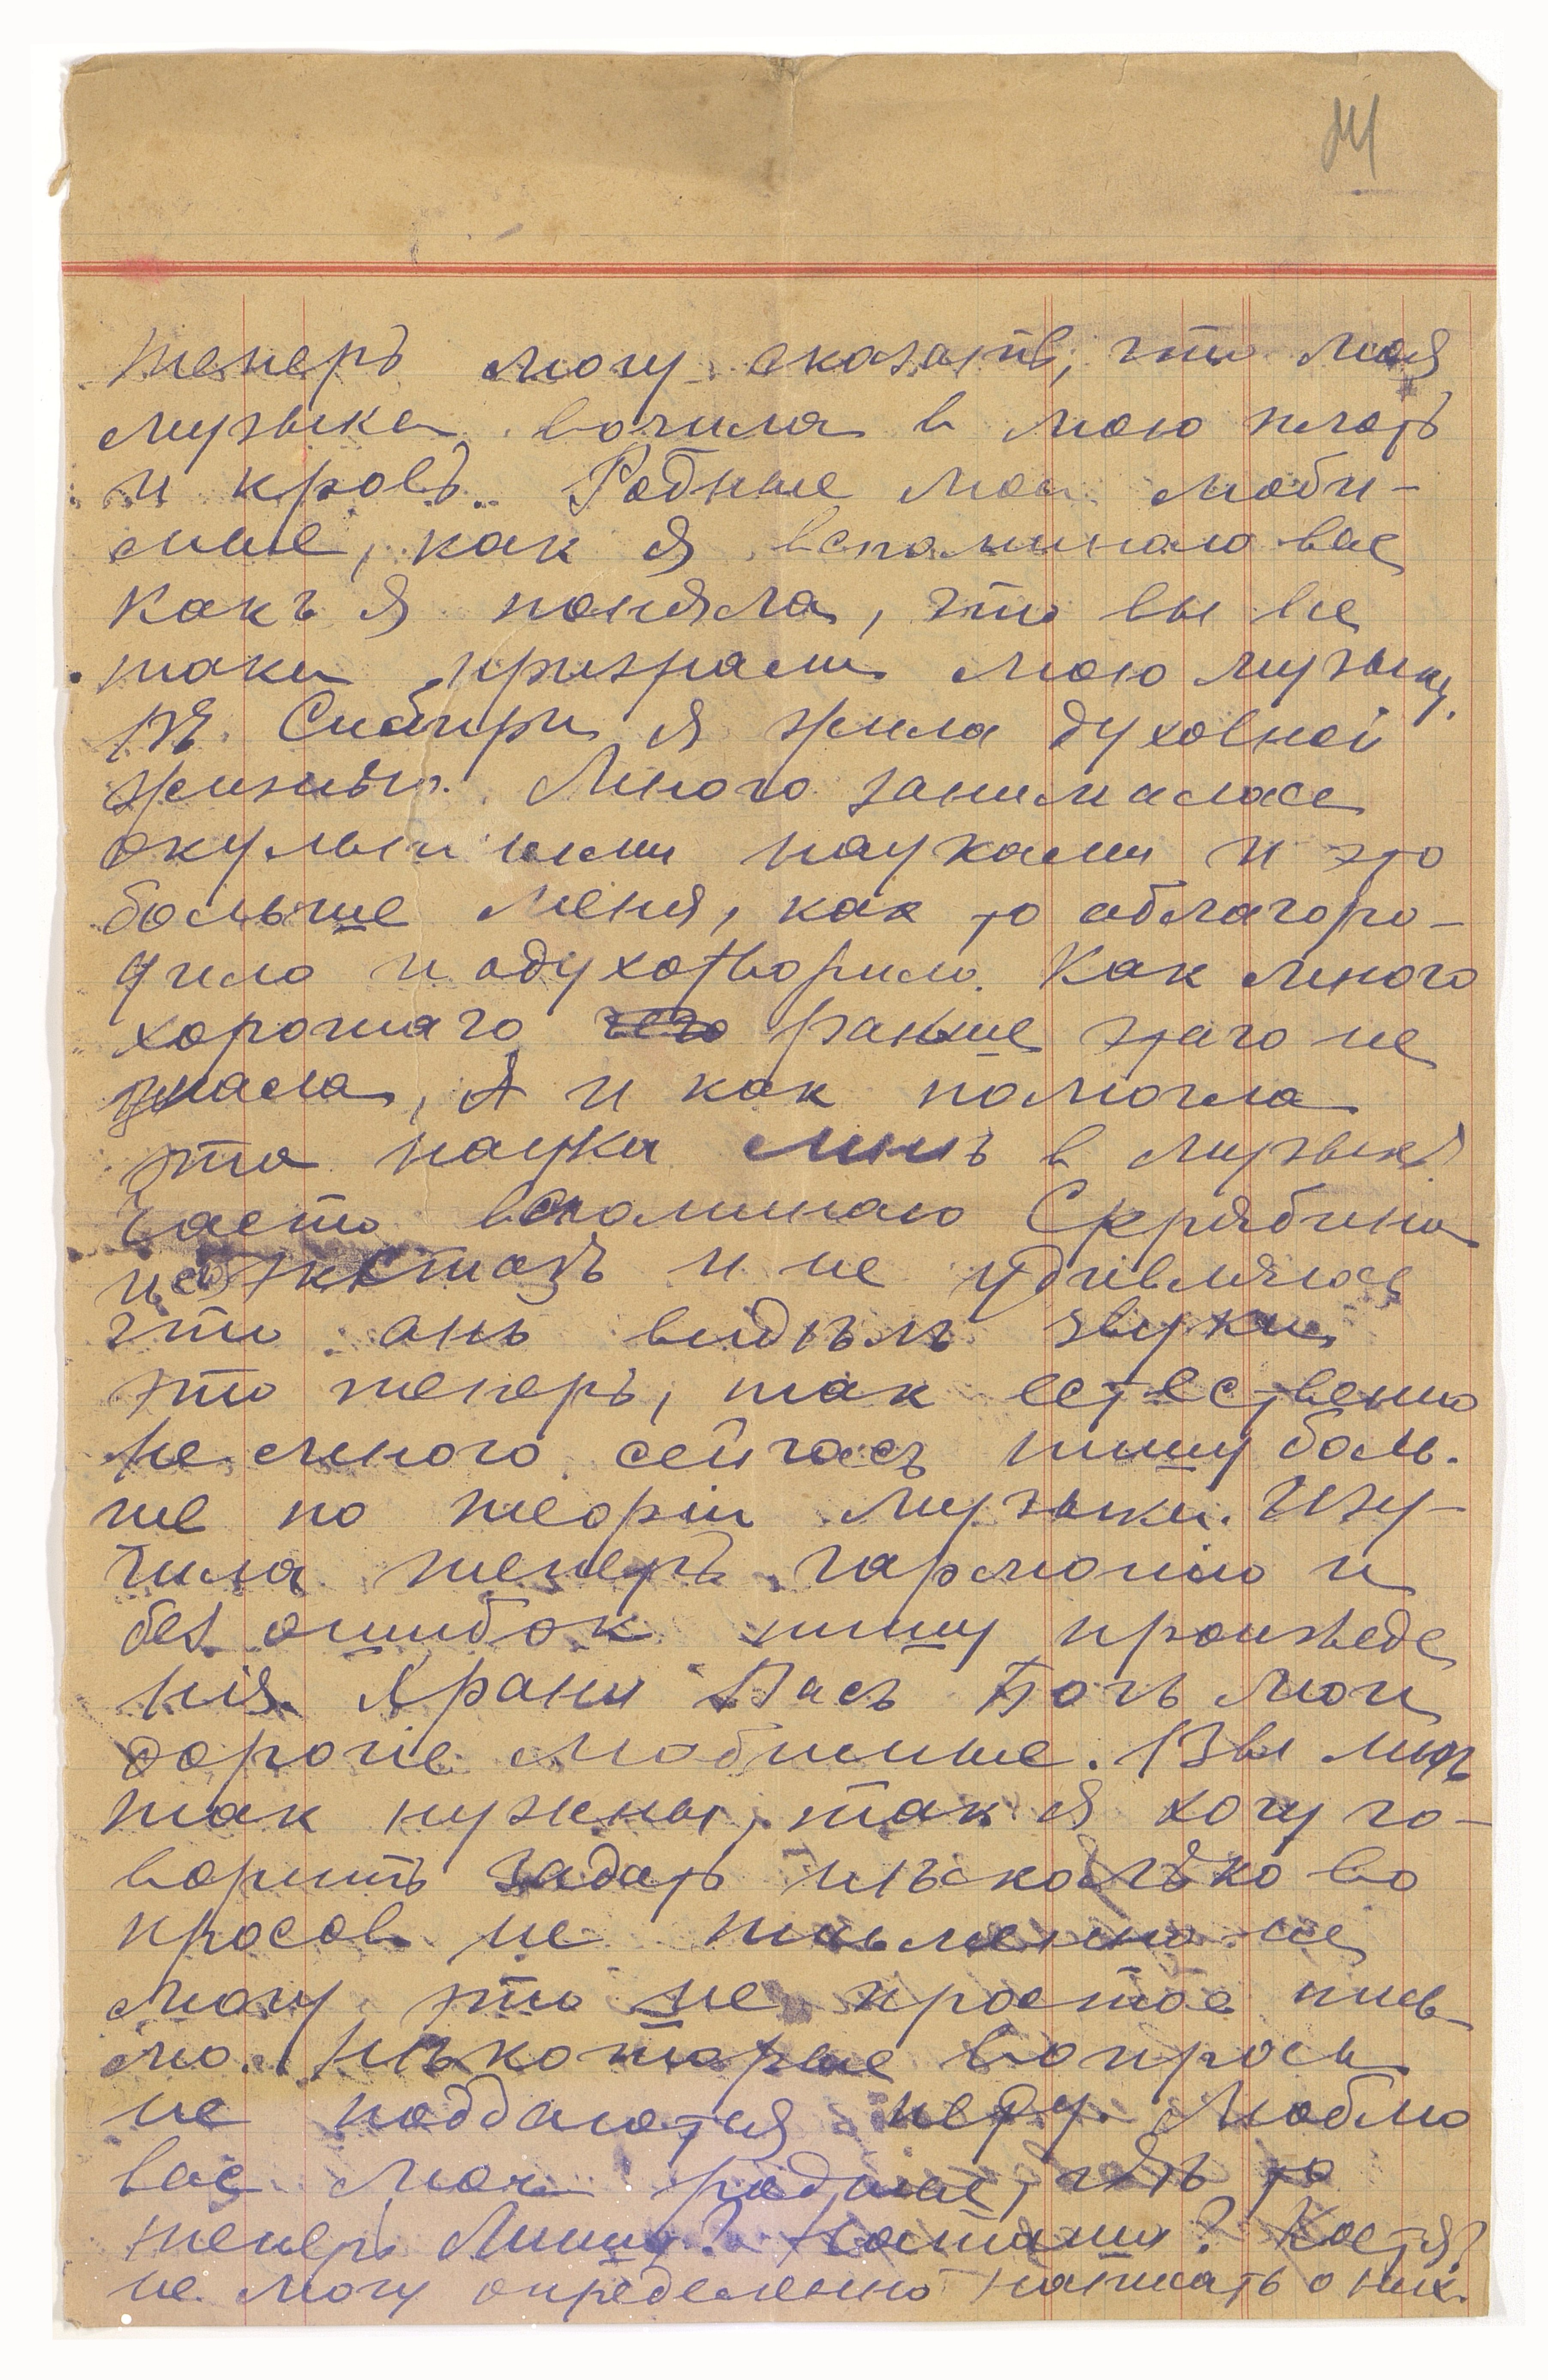 14
теперь могу сказать, что моя
музыка вошла в мою плоть
и кровь. Родные мои люби-
мые, как я вспоминаю вас
Какъ я поняла, что вы все
таки призрали мою музыку.
Въ Сибири я жила духовной
жизнью. Много занималась
окультными науками и это
больше меня, как то облагоро-
дило и одухотворило. Как много
хорошаго раньше этаго не
знала, А и как помогла
эта наука мнѣ в музыкѣ
Часто вспоминаю Скрябина
экстазъ и не удивляюсь
что онъ видѣлъ звуки,
это теперь, так естественно
Не много сейчасъ пишу боль-
ше по теоріи музыки. Изу-
чила теперь гармонію и
без ошибок пишу произведе
нія. Храни Васъ Богъ мои
дорогіе любимые. Вы мнѣ
так нужны, так я хочу го-
ворить задать нѣсколько во
просов не письменно не
могу это не простое пись
мо. Нѣкоторые вопросы
не поддаются перу. Люблю
вас мои родные, гдѣ то
теперь Миша? Наташа? Костя?
не могу определенно написать о них.